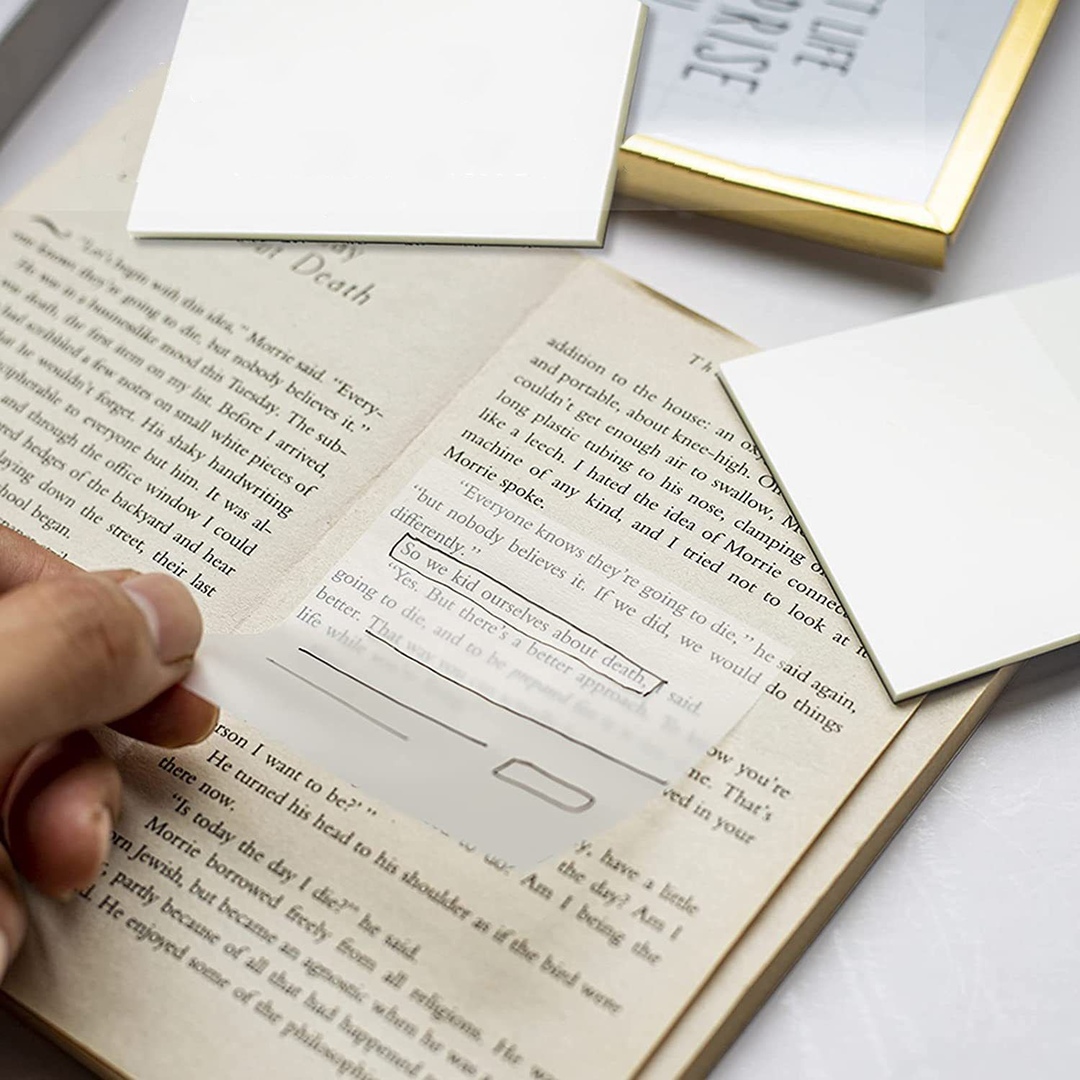 LIFE
PRISE
ay
Death
"Let's begin with this idea," Morrie said. "Every-
one knows they're going to die, but nobody believes it."
He was in a businesslike mood this Tuesday. The sub-
was death, the first item on my list. Before I arrived,
had scribbled a few notes on small white pieces of
he wouldn't forget. His shaky handwriting
to everyone but him. It was al-
and through the office window I could
hedges of the backyard and hear
down the street, their last
began.
Th
addition to the house: an ox
and portable, about knee-high. O
couldn't get enough air to swallow, M
long plastic tubing to his nose, clamping o
like a leech. I hated the idea of Morrie connec
machine of any kind, and I tried not to look at
Morrie spoke.
"Everyone knows they're going to die," he said again,
"but nobody believes it. If we did, we would do things
differently."
So we kid ourselves about death, I said.
"Yes. But there's a better approach.
going to die, and to be prepared ow you're
better. That way me. That's
life while ved in your
y, have a little
the day? Am I
to do? Am I being the
rson I want to be?'"
He turned his head to his shoulder as if the bird were
there now.
"Is today the day I die?" he said.
Morrie borrowed freely from all religions. He
orn Jewish, but became an agnostic when he was
partly because of all that had happened
He enjoyed some of the